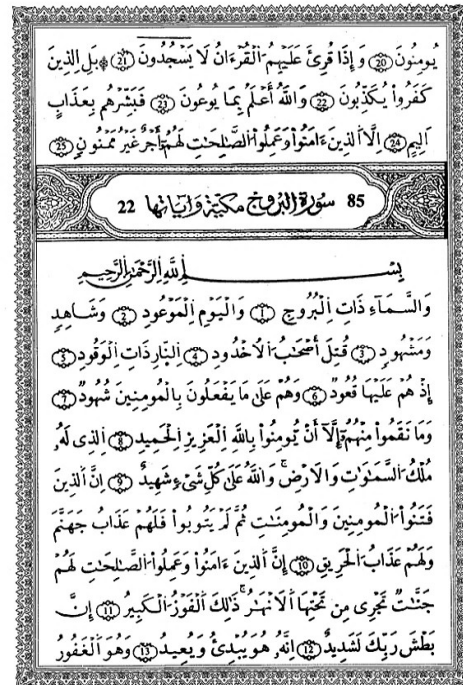 يُومِنُونَ 20 وَإِذَا قُرِئَ عَلَيْهِمُ الْقُرْءَانُ لَا يَسْجُدُونَ 21 بَلِ الذِينَ
كَفَرُواْ يُكَذِّبُونَ 22 وَاللَّهُ أَعْلَمُ بِمَا يُوعُونَ 23 فَبَشِّرْهُم بِعَذَابٍ
اَلِيمٍ 24 اِلَّا الذِينَ ءَامَنُواْ وَعَمِلُواْ الصَّٰلِحَٰتِ لَهُمُۥٓ أَجْرٌ غَيْرُ مَمْنُونٍ 25
85 سورة البروج مكية وءاياتها 22
بِسْمِ اِللَّهِ اِلرَّحْمَٰنِ اِلرَّحِيمِ
وَالسَّمَآءِ ذَاتِ اِلْبُرُوجِ 1 وَالْيَوْمِ اِلْمَوْعُودِ 2 وَشَاهِدٍ
وَمَشْهُودٍ 3 قُتِلَ أَصْحَٰبُ اُلُاخْدُودِ 4 اِلنَّارِ ذَاتِ اِلْوَقُودِ 5
إِذْ هُمْ عَلَيْهَا قُعُودٌ 6 وَهُمْ عَلَىٰ مَا يَفْعَلُونَ بِالْمُومِنِينَ شُهُودٌ 7
وَمَا نَقَمُواْ مِنْهُمُۥٓ إِلَّآ أَنْ يُّومِنُواْ بِاللَّهِ اِلْعَزِيزِ اِلْحَمِيدِ 8 اِلذِى لَهُۥ
مُلْكُ اُلسَّمَٰوَٰتِ وَالَارْضِ وَاللَّهُ عَلَىٰ كُلِّ شَىْءٍ شَهِيدٌ 9 اِنَّ الذِينَ
فَتَنُواْ اُلْمُومِنِينَ وَالْمُومِنَٰتِ ثُمَّ لَمْ يَتُوبُواْ فَلَهُمْ عَذَابُ جَهَنَّمَ
وَلَهُمْ عَذَابُ اُلْحَرِيقِ 10 إِنَّ اَلذِينَ ءَامَنُواْ وَعَمِلُواْ اُلصَّٰلِحَٰتِ لَهُمْ
جَنَّٰتٌ تَجْرِى مِن تَحْتِهَا اَلَانْهَٰرُ ذَٰلِكَ اَلْفَوْزُ اُلْكَبِيرُ 11 إِنَّ
بَطْشَ رَبِّكَ لَشَدِيدٌ 12 اِنَّهُۥ هُوَ يُبْدِئُ وَيُعِيدُ 13 وَهُوَ اَلْغَفُورُ